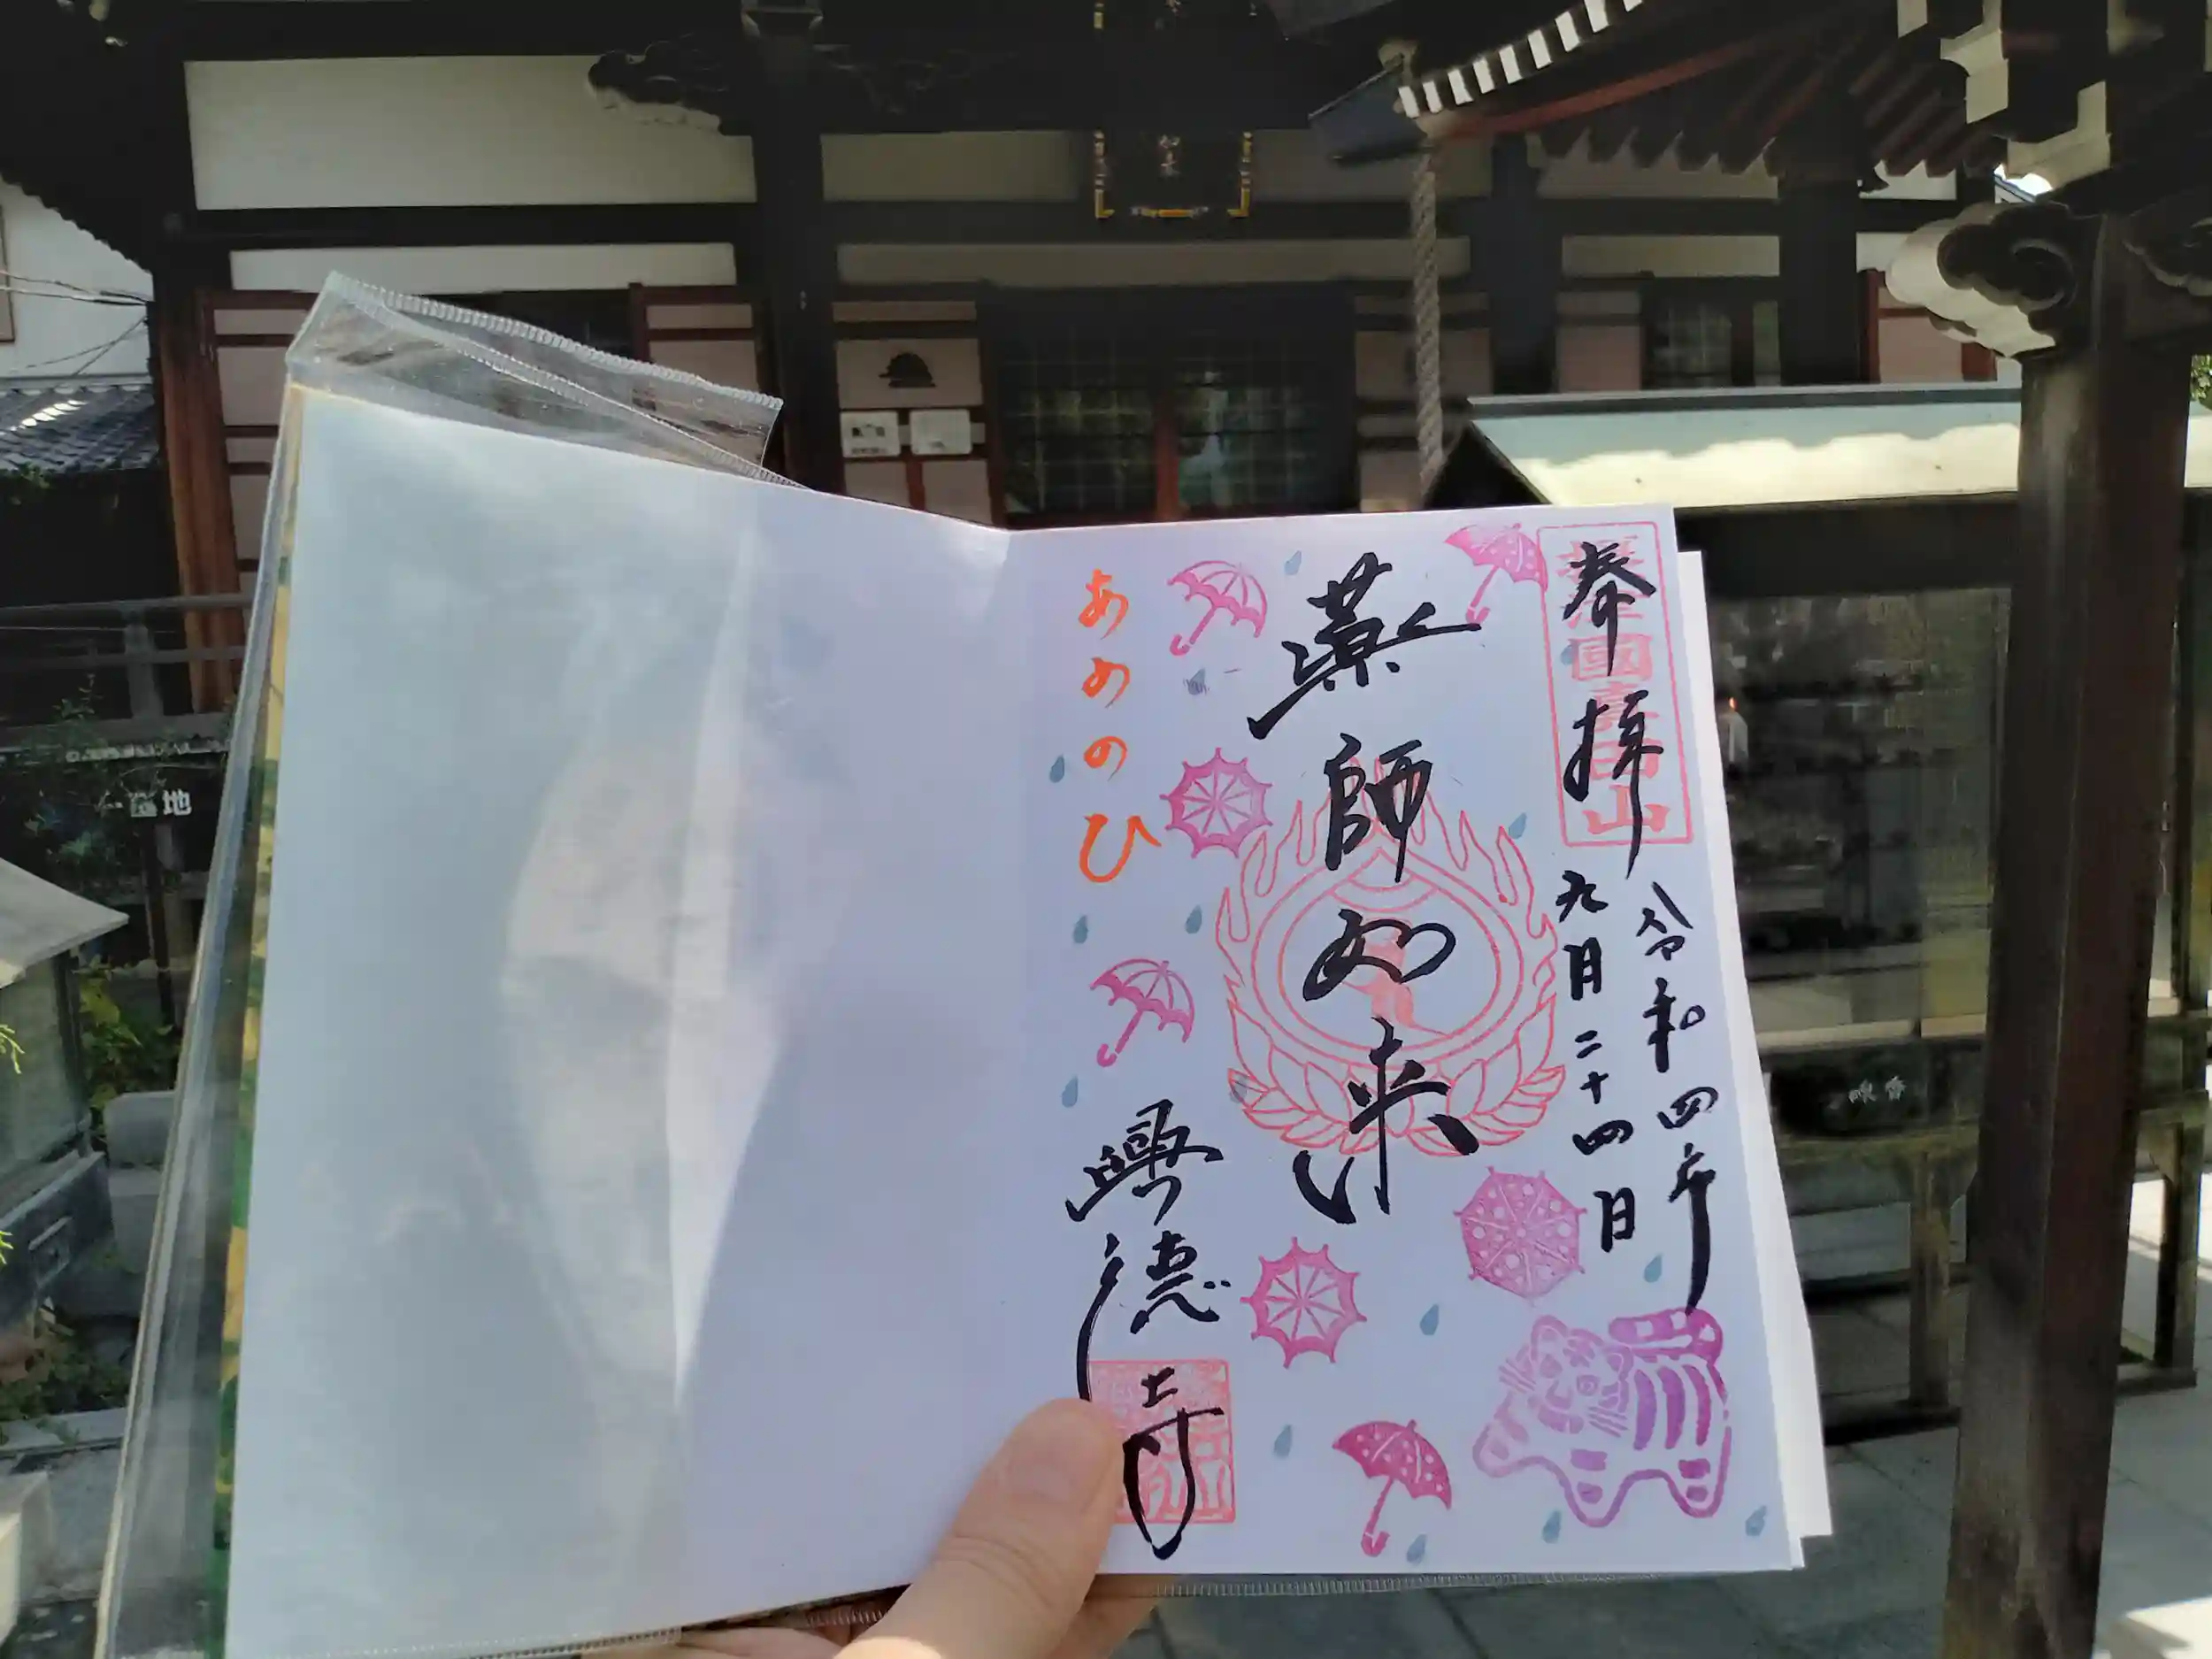 奉拝
令和四年
九月二十四日
薬師如来
あめのひ
興德寺
墓地
香線